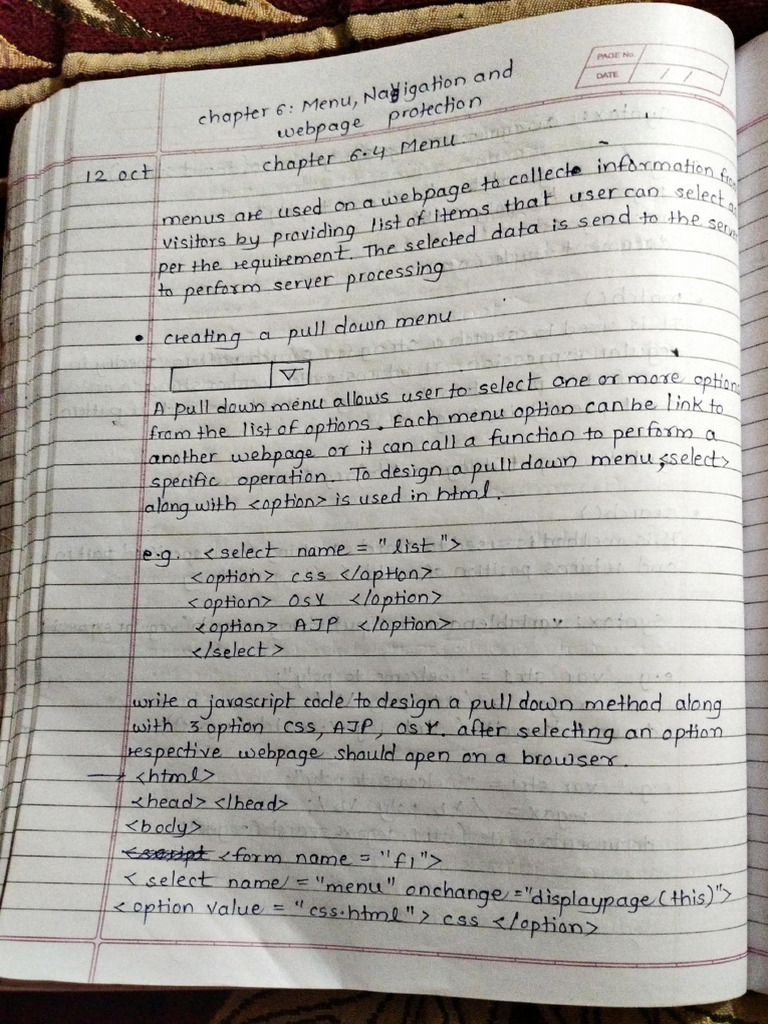 PAGE No.
DATE / /
chapter 6: Menu, Navigation and
webpage protection
12 oct chapter 6.4 Menu.
menus are used on a webpage to collect information
visitors by providing list of items that user can select
per the requirement. The selected data is send to the
to perform server processing
• creating a pull down menu
A pull down menu allows user to select one or more option
from the list of options. Each menu option can be link to
another webpage or it can call a function to perform a
specific operation. To design a pull down menu, <select>
along with <option> is used in html.
e.g. <select name = "list">
<option> css </option>
<option> OSY </option>
<option> AJP </option>
</select>
write a javascript code to design a pull down method along
with 3 option css, AJP, OSY. after selecting an option
respective webpage should open on a browser.
→ <html>
<head> </head>
<body>
<script <form name = "f1">
<select name = "menu" onchange = "displaypage(this)">
<option value = "css.html"> css </option>